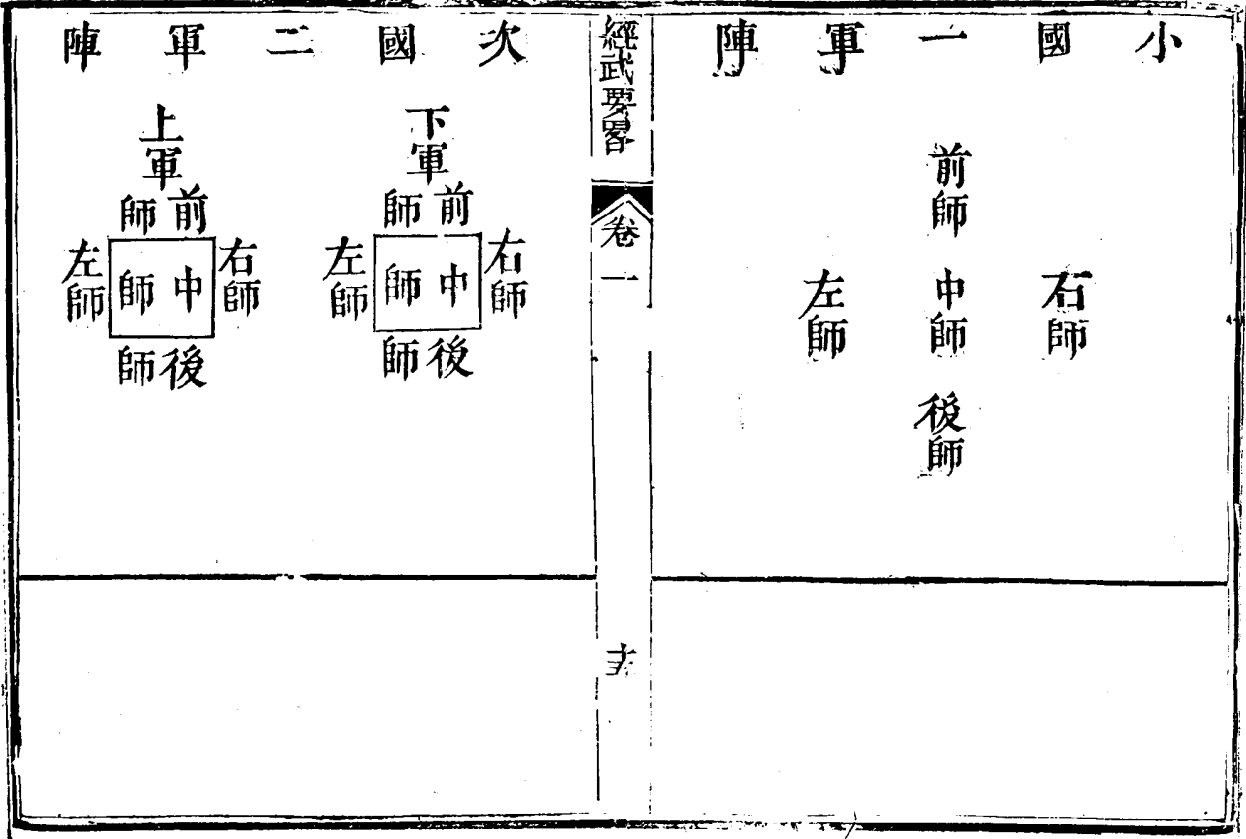 小國一軍陣
前師
右師
中師
左師
後師
經武要畧
卷一
次國二軍陣
下軍
前師
右師
中師
左師
後師
上軍
前師
右師
中師
左師
後師